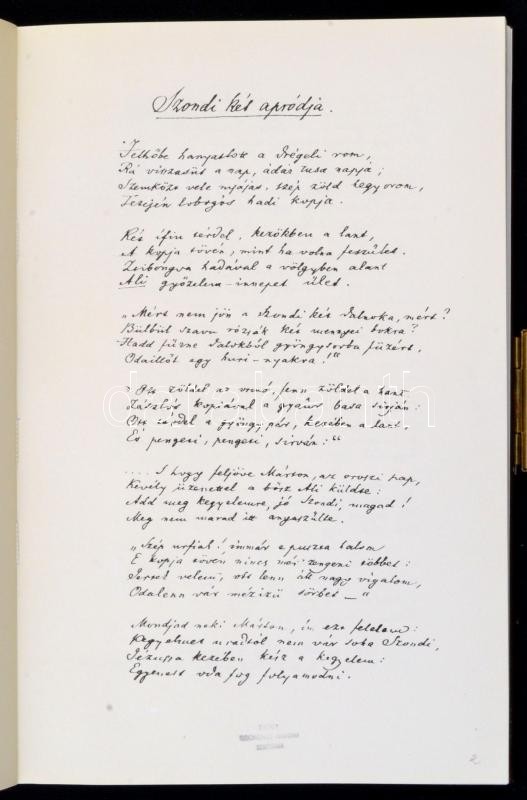 Szondi két apródja.
Felhőbe hanyatlott a drégeli rom,
Rá visszasüt a nap, ádáz tusa napja;
Szemközt vele nyájas, szép zöld hegyorom,
Tetején lobogós hadi kopja.
Két ifiu térdel, kezökben a lant,
A kopja tövén, mint ha volna feszület.
Zsibongva hadával a völgyben alant
Ali győzelem-ünnepet ület.
„Mért nem jön a Szondi két dalnoka, mért?
Bülbül szavu rózsák két mennyei bokra?
Hadd fűzne dalokból gyöngysorba füzért,
Odaillőt egy huri-nyakra!"
„Ott zöldel az ormó, fenn zöldel a hant
Zászlós kopiával a gyaúr basa sirján:
Ott térdel a gyöngypár, kezében a lant,
És pengeti, pengeti, sirván:"
.... S hogy feljöve Márton, az oroszi pap,
Kevély üzenettel a bősz Ali küldte:
Add meg kegyelemre, jó Szondi, magad!
Meg nem marad itt anyaszülte.
„Szép urfiak! immár e puszta halom
E kopja tövén nincs mér' zengeni többet:
Jertek velem, ott lenn áll nagy vigalom,
Odalenn vár mézizű sörbet —"
Mondjad neki Márton, im ezt felelem:
Kegyelmet uradtól nem vár soha Szondi,
Jézusa kezében kész a kegyelem:
Egyenest oda fog folyamodni.
2